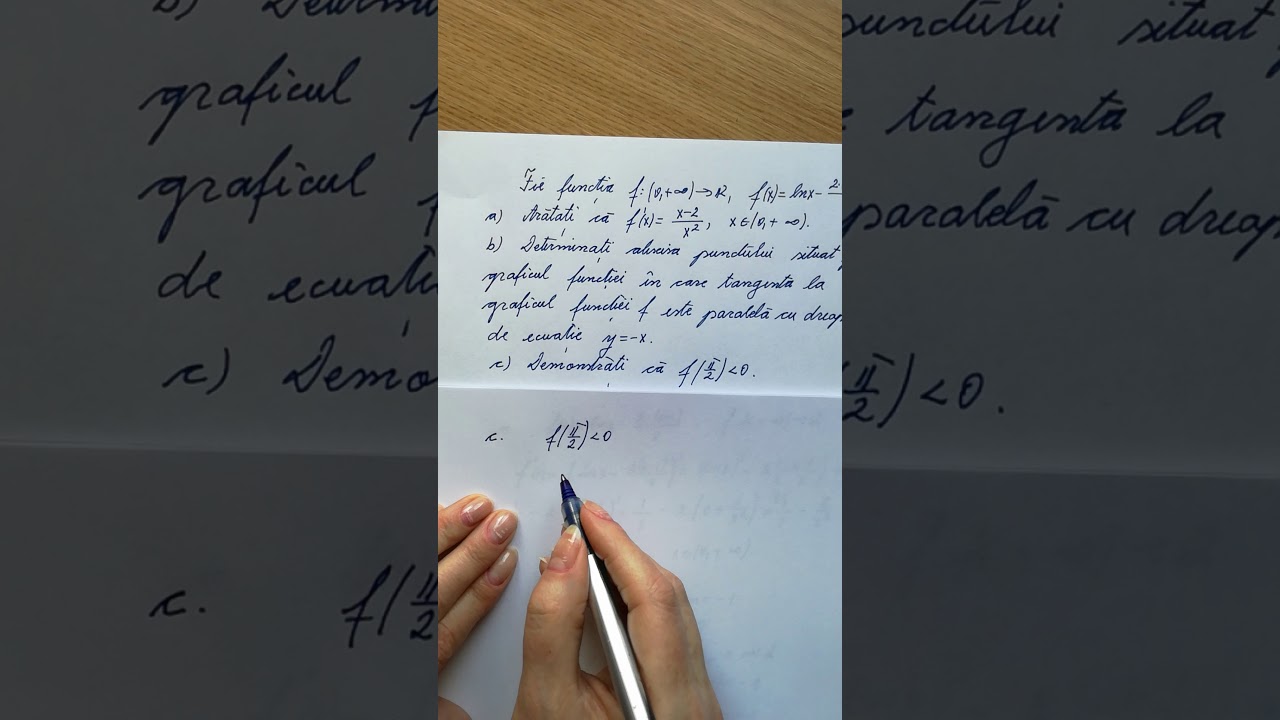 Fie funcția f:(0,+∞)→R, f(x)=lnx-2
a) Arătați că f'(x)=x-2/x², x∈(0,+∞).
b) Determinați abscisa punctului situat
graficul funcției în care tangenta la
graficul funcției f este paralelă cu dreap
de ecuație y=-x.
c) Demonstrați că f(π/2)<0.
c. f(π/2)<0